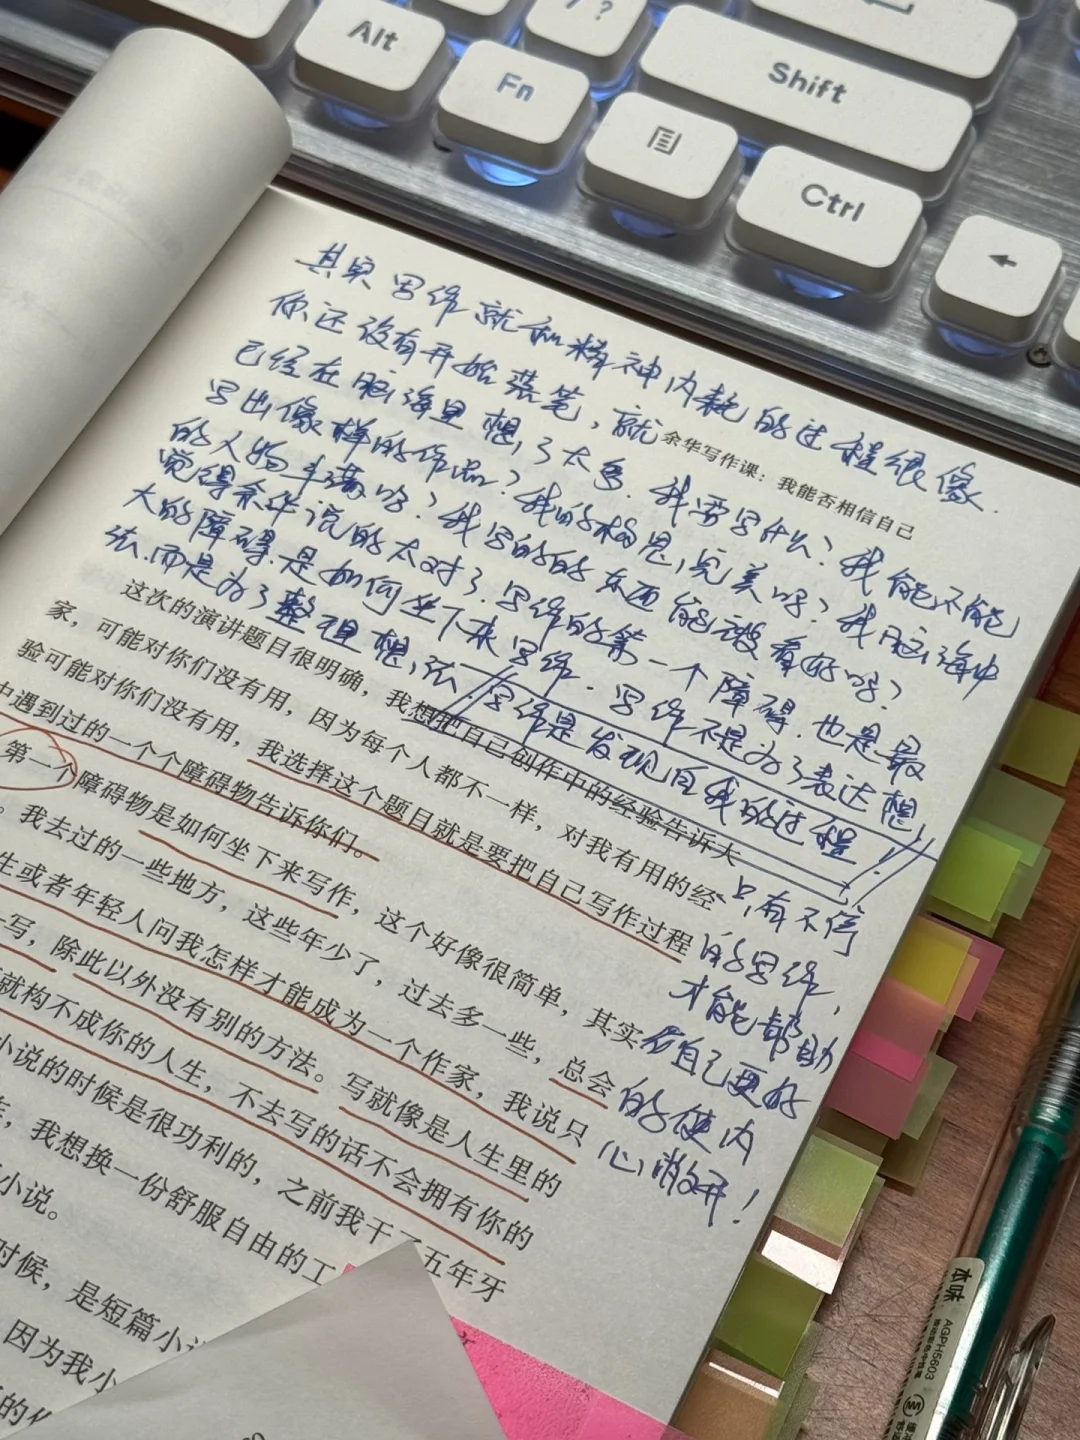 Alt
Fn
? /
Shift
Ctrl
←
其实写作就和精神内耗的过程很像.
你还没有开始落笔,就
已经在脑海里想了太多.我要写什么?我能不能
写出像样的作品?我的构思完美吗?我脑海中
的人物丰满吗?我写的的东西能被看好吗?
觉得余华说的太对了.写作的第一个障碍.也是最
大的障碍.是如何坐下来写作.写作不是为了表达想
法.而是为了整理想法
写作是发现自我的过程!
只有不停
的写作,
才能帮助
自己更好
的使内
心敞开!
余华写作课:我能否相信自己
这次的演讲题目很明确,我想把自己创作中的经验告诉大
家,可能对你们没有用,因为每个人都不一样,对我有用的经
验可能对你们没有用,我选择这个题目就是要把自己写作过程
中遇到过的一个个障碍物告诉你们。
第一个障碍物是如何坐下来写作,这个好像很简单,其实
。我去过的一些地方,这些年少了,过去多一些,总会
生或者年轻人问我怎样才能成为一个作家,我说只
写,除此以外没有别的方法。写就像是人生里的
就构不成你的人生,不去写的话不会拥有你的
小说的时候是很功利的,之前我干了五年牙
,我想换一份舒服自由的工
小说。
时候,是短篇小
因为我小
的
本味
AGPH5603